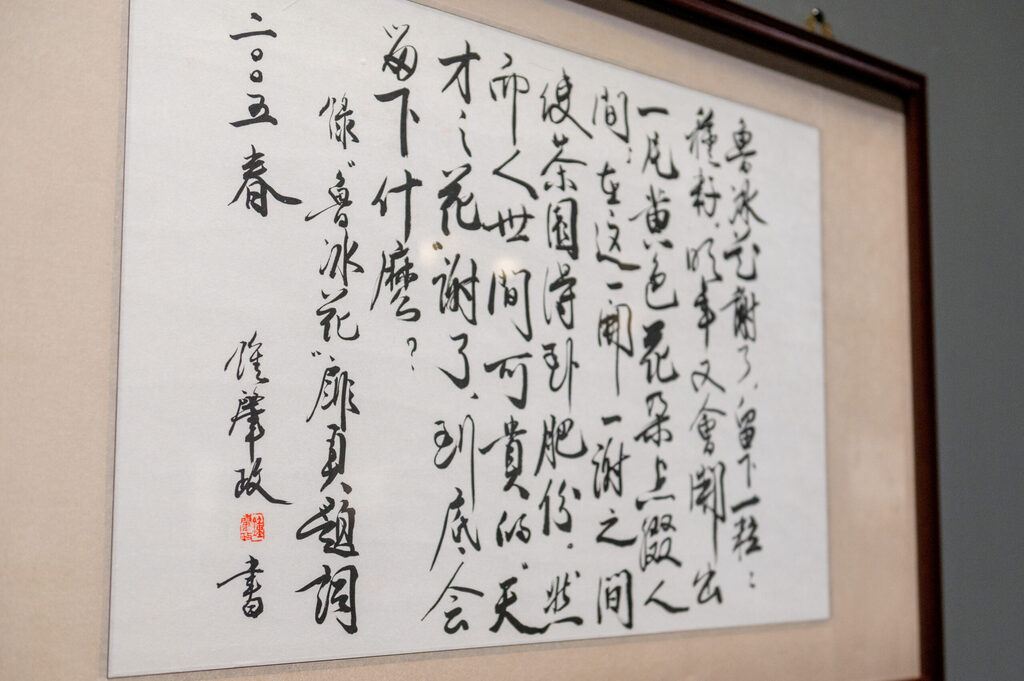 魯冰花謝了，留下一粒：
種籽，明年又會開出
一片黃色花朵点綴人
間；在這一開一謝之間
使茶園得到肥份．然
而人世間可貴的“天
才之花”謝了，到底会
留下什麼？
錄“魯冰花”扉頁題詞
二○○五春
鍾肇政 書